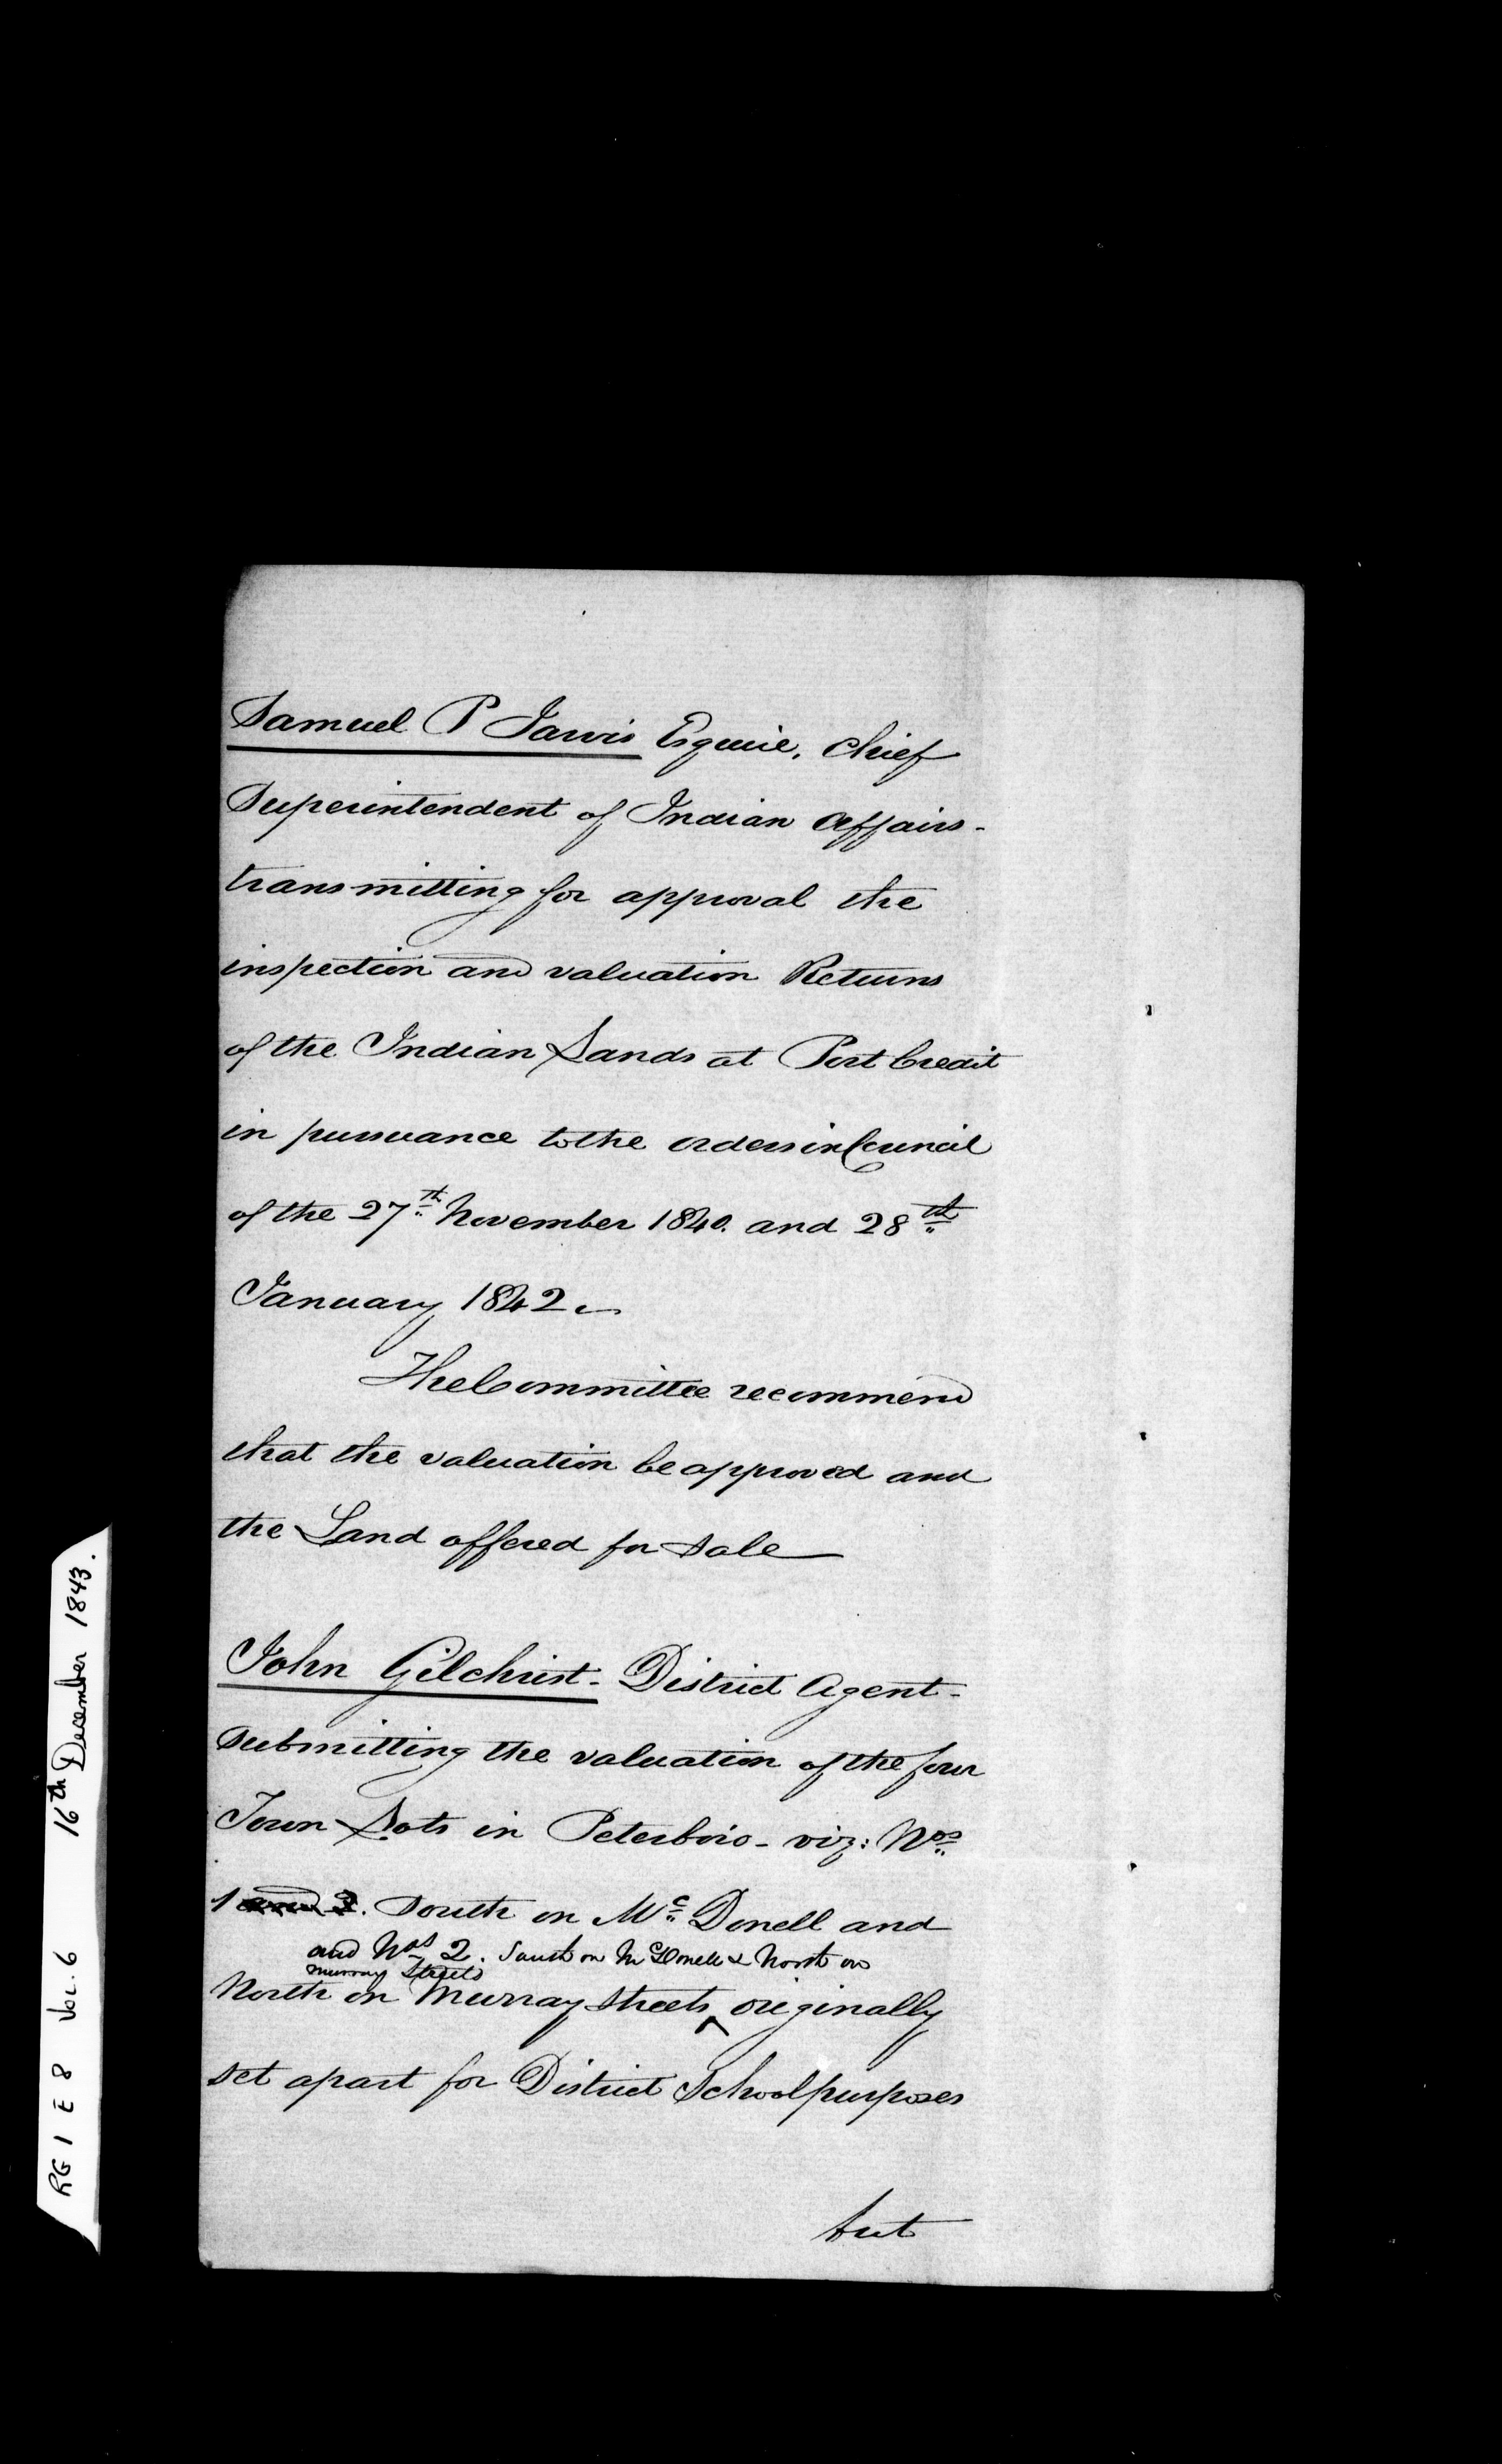 Samuel P Jarvis Esquire, Chief
Superintendent of Indian Affairs -
transmitting for approval the
inspection and valuation Returns
of the Indian Lands at Port Credit
in pursuance to the orders in Council
of the 27th November 1840. and 28th
January 1842 -
The Committee recommend
that the valuation be approved and
the Land offered for sale
John Gilchrist - District Agent -
submitting the valuation of the four
Town Lots in Peterboro - viz: Nos
1 and 2. South on Mc Donell and
and Nos 2. South on McDonell & North on
Murray Streets
North on Murray Streets ^ originally
set apart for District School purposes
but
RG 1 E 8 Vol. 6 16th December 1843.